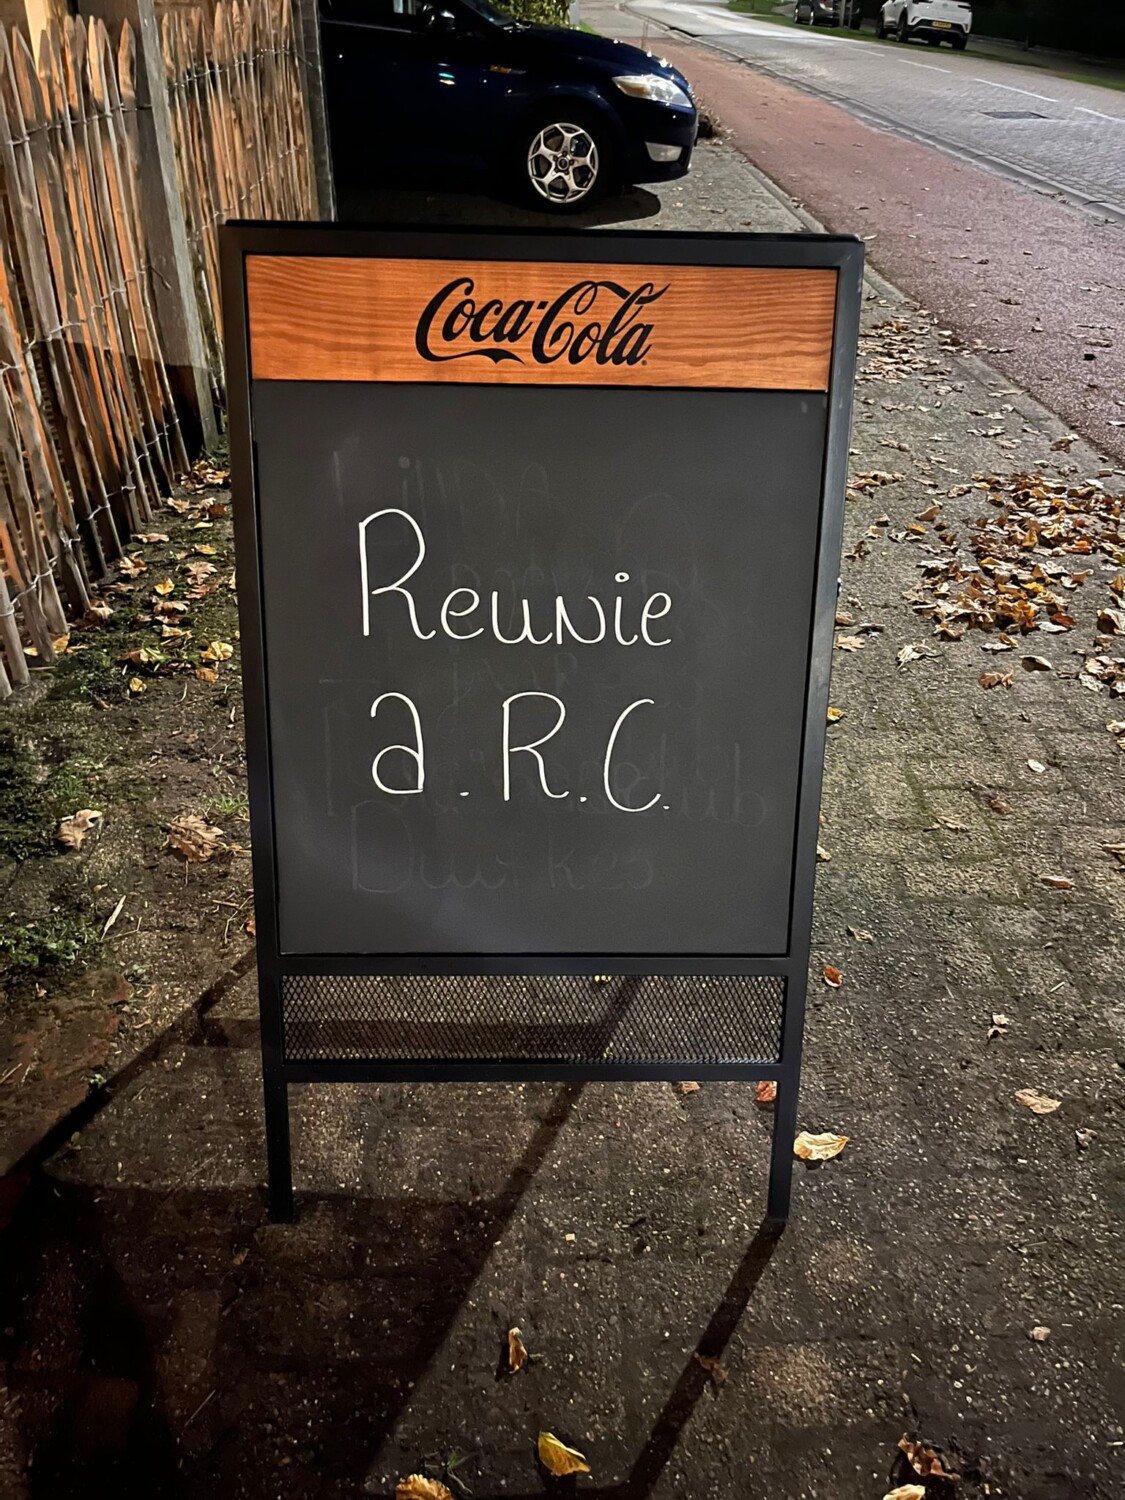 Coca-Cola
Reunie
a.R.C.